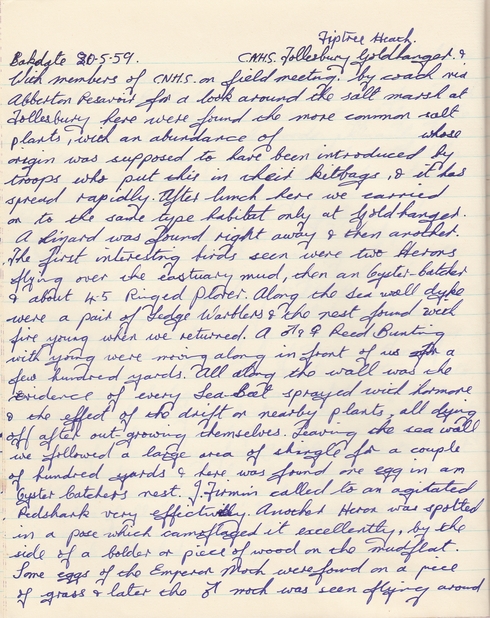 Tiptree Heath.
Oakdate 20-5-59. CNHS. Tollesbury Goldhanger. &
With members of CNHS. on field meeting. By coach via
Abberton Resavoir for a look around the salt marsh at
Tollesbury here were found the more common salt
plants, with an abundance of whose
origin was supposed to have been introduced by
troops who put this in their kitbags, & it has
spread rapidly. After lunch here we carried
on to the same type habitat only at Goldhanger.
A Lizard was found right away & then another.
The first interesting birds seen were two Herons
flying over the eastuary mud, then an Oyster-catcher
& about 4-5 Ringed Plover. Along the sea wall dyke
were a pair of Sedge Warblers & the nest found with
five young when we returned. A ♂ & ♀ Reed Bunting
with young were moving along in front of us for a
few hundred yards. All along the wall was the
evidence of every Sea-Beet sprayed with hormone
& the effect of the drift on nearby plants, all dying
off after out-growing themselves. Leaving the sea wall
we followed a large area of shingle for a couple
of hundred yards & here was found one egg in an
Oyster Catchers nest. J. Firmin called to an agitated
Redshank very effectively. Another Heron was spotted
in a pose which camoflaged it excellently, by the
side of a bolder or piece of wood on the mudflat.
Some eggs of the Emperor Moth were found on a piece
of grass & later the ♂ moth was seen flying around